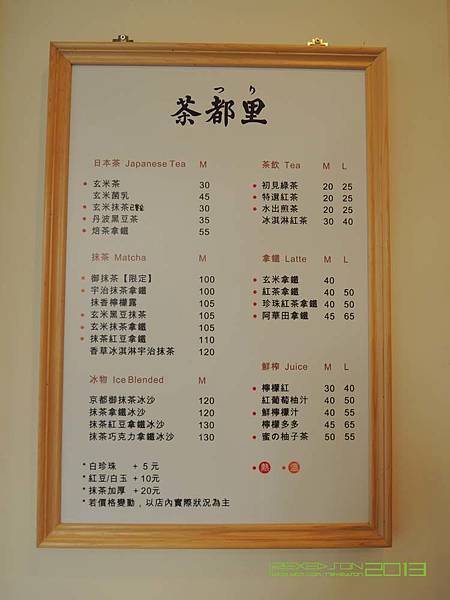 つり
茶都里
日本茶 Japanese Tea M
玄米茶 30
玄米菌乳 45
玄米抹茶 30
丹波黑豆茶 35
焙茶拿鐵 55
抹茶 Matcha M
御抹茶【限定】 100
宇治抹茶拿鐵 100
抹香檸檬露 105
玄米黑豆抹茶 105
玄米抹茶拿鐵 105
抹茶紅豆拿鐵 110
香草冰淇淋宇治抹茶 120
冰物 Ice Blended M
京都御抹茶冰沙 120
抹茶拿鐵冰沙 120
抹茶紅豆拿鐵冰沙 130
抹茶巧克力拿鐵冰沙 130
*白珍珠 +5元
*紅豆/白玉 +10元
*抹茶加厚 +20元
*若價格變動，以店內實際狀況為主
茶飲 Tea M L
初見綠茶 20 25
特選紅茶 20 25
水出煎茶 20 25
冰淇淋紅茶 30 40
拿鐵 Latte M L
玄米拿鐵 40
紅茶拿鐵 40 50
珍珠紅茶拿鐵 40 50
阿華田拿鐵 45 65
鮮榨 Juice M L
檸檬紅 30 40
紅葡萄柚汁 40 50
鮮檸檬汁 40 55
檸檬多多 45 65
蜜の柚子茶 50 55
熱 溫
2013